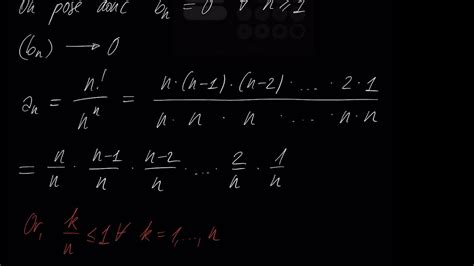 On pose donc bₙ = 0 ∀ n ≥ 1
(bₙ) → 0
aₙ = n! / nⁿ = n·(n-1)·(n-2)· … ·2·1 / n · n · n · … · n · n
= n/n · (n-1)/n · (n-2)/n · … · 2/n · 1/n
Or, k/n ≤ 1 ∀ k = 1, …, n